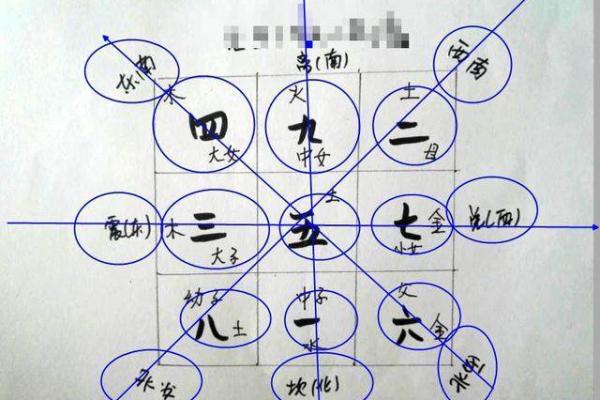 离(南)
东南
西南
木 火 土
四 九 二
大女 中女 母
土
震(东) 木 三 五 七 金 兑(西)
大子 少女
幼子 中子 父
八 土 一 六 金
水
东北 坎(北) 西北